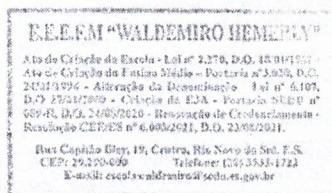 E.E.E.F.M "WALDEMIRO HEMERLY"
Ato de Criação da Escola - Lei nº 2.270, D.O.
Ato de Criação do Ensino Médio - Portaria nº 3.020, D.O.
24/01/1996 - Alteração da Denominação Lei nº 6.107,
D.O 27/01/2000 - Criação da EJA - Portaria SEDU nº
089-R, D.O. 24/05/2020 - Renovação de Credenciamento -
Resolução CEE/ES nº 6.003/2021, D.O. 23/08/2021.
Rua Capitão Bley, 19, Centro, Rio Novo do Sul, E.S.
CEP: 29.290-000 Telefone: (28) 3533-1723
E-mail: